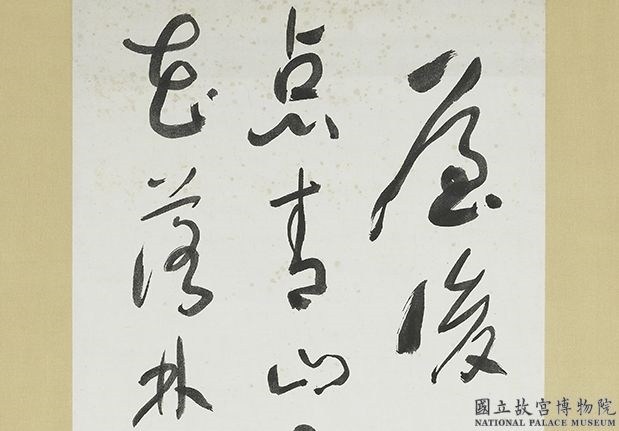 屋後
点青山
花落林
國立故宮博物院
NATIONAL PALACE MUSEUM